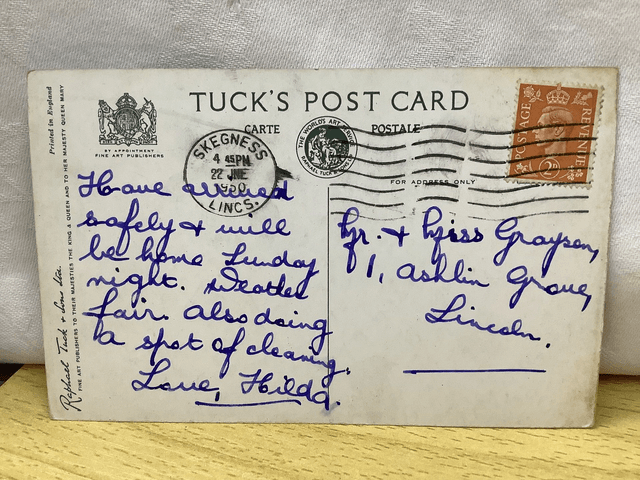 TUCK'S POST CARD
CARTE POSTALE
BY APPOINTMENT
FINE ART PUBLISHERS
THE WORLD'S ART SERVICE
RAPHAEL TUCK & SONS LTD
FOR ADDRESS ONLY
POSTAGE
REVENUE
SKEGNESS
4 45PM
22 JNE
1950
LINCS.
Have arrived
safely & will
be home Sunday
night. Weather
fair. Also doing
a spot of cleaning.
Love, Hilda.
Mr. & Miss Grayson,
1, Ashlin Grove,
Lincoln.
Printed in England
Raphael Tuck & Sons Ltd.
FINE ART PUBLISHERS TO THEIR MAJESTIES THE KING & QUEEN AND TO HER MAJESTY QUEEN MARY